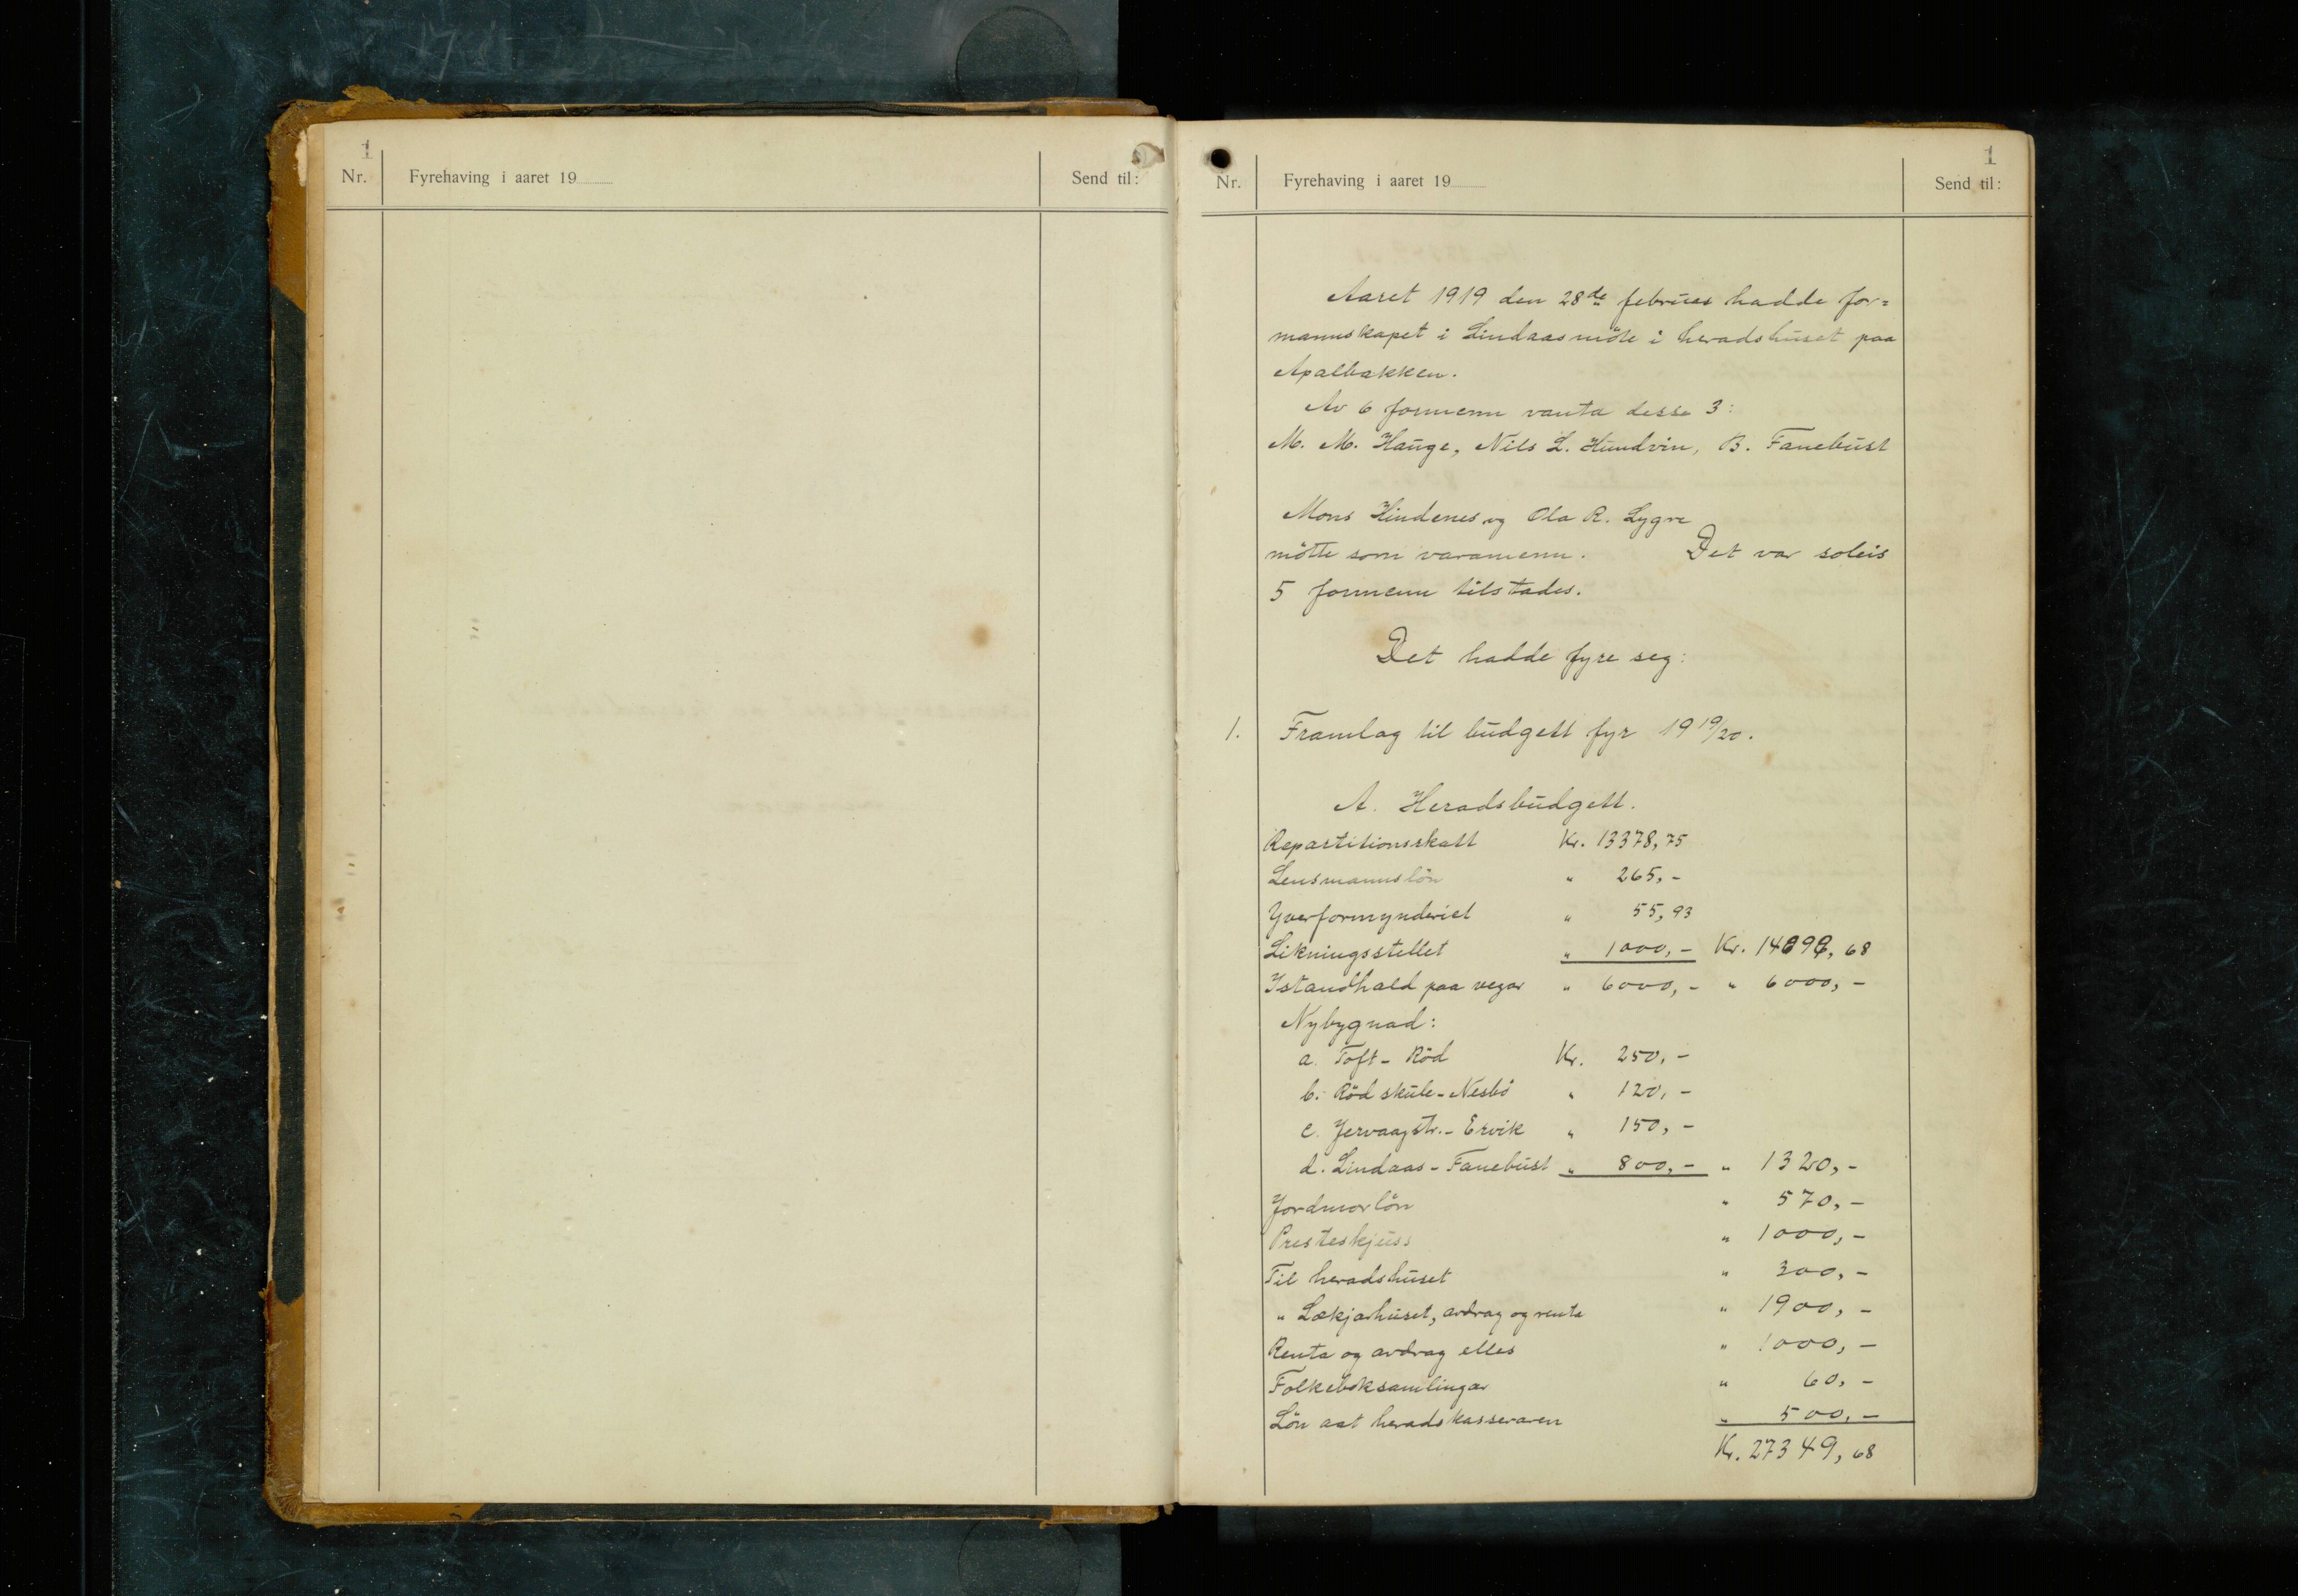 1
Nr. Fyrehaving i aaret 19 Send til:
1
Nr. Fyrehaving i aaret 19 Send til:
Aaret 1919 den 28de februar hadde for=
mannskapet i Lindaas möte i heradshuset paa
Apalbakken.
Av 6 formenn vanta desse 3:
M. M. Hauge, Nils L. Hundvin, B. Fanebust
Mons Hindenes og Ola R. Lygre
mötte som varamenn. Det var soleis
5 formenn tilstades.
Det hadde fyre seg:
1. Framlag til budgett fyr 19 19/20.
A. Heradsbudgett.
Repartitionsskatt Kr. 13378,75
Lensmannslön " 265,-
Yverformynderiet " 55,93
Likningsstellet " 1000,- Kr. 14699,68
Istandhald paa vegar " 6000,- " 6000,-
Nybygnad:
a. Toft - Röd Kr. 250,-
b. Röd skule - Nesbö " 120,-
c. Jervaagstr. - Ervik " 150,-
d. Lindaas - Fanebust " 800,- " 1320,-
Jordmorlön " 570,-
Presteskjuss " 1000,-
Til heradshuset " 300,-
" Lækjarhuset, avdrag og renta " 1900,-
Renta og avdrag elles " 1000,-
Folkeboksamlingar " 60,-
Lön aat heradskasseraren " 500,-
Kr. 27349,68